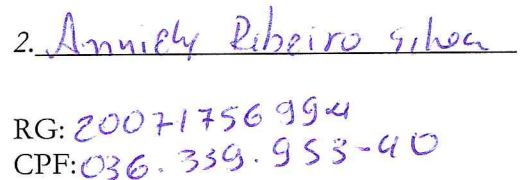 2. Anniely Ribeiro Silva
RG: 20071756994
CPF: 036.339.953-40